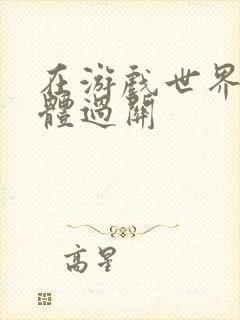 在游戲世界
體過關
高星